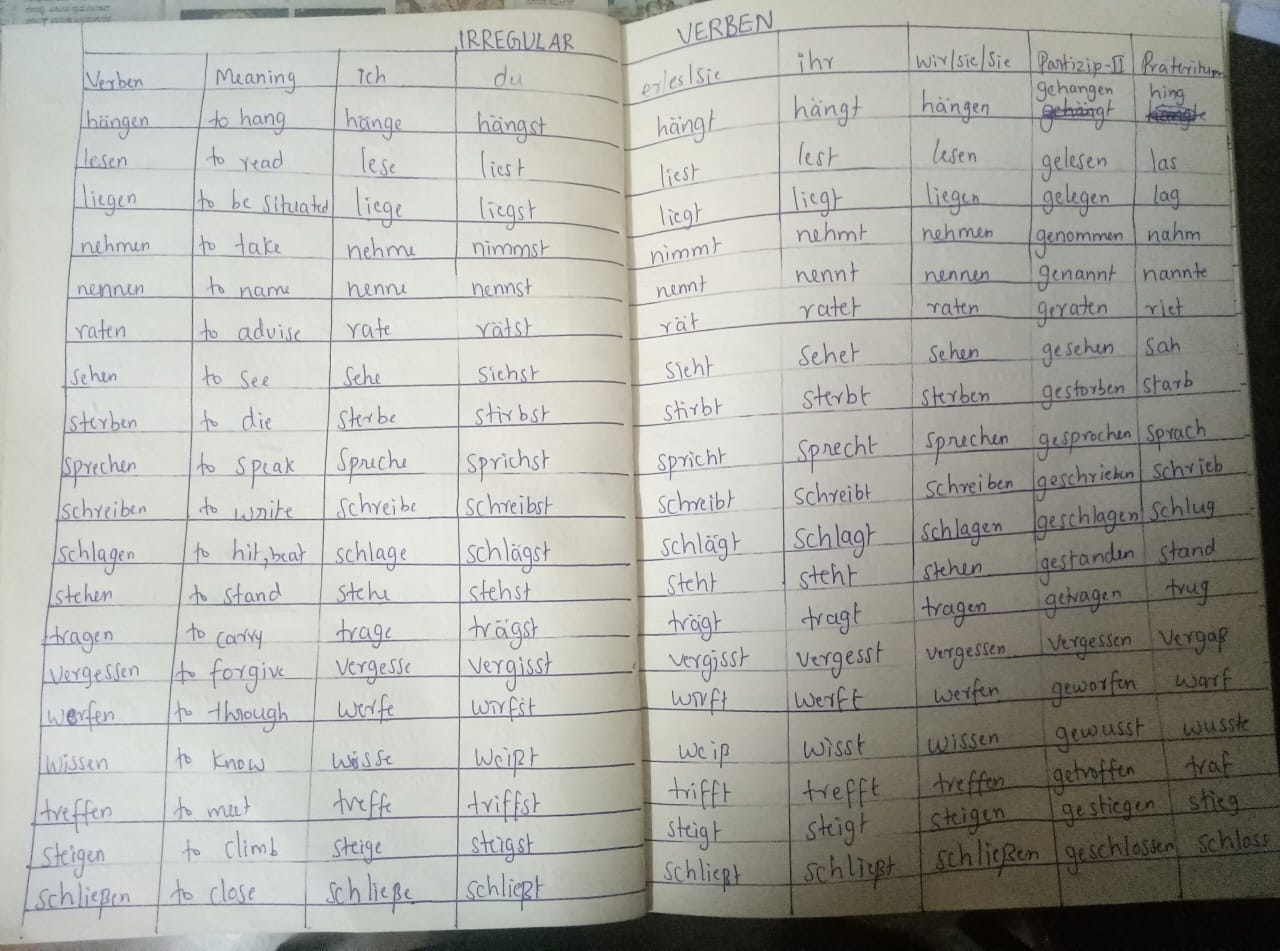 IRREGULAR VERBEN
Verben Meaning ich du er/es/sie ihr wir/sie/Sie Partizip-II Prateritum
hängen to hang hänge hängst hängt hängt hängen gehangen hing
lesen to read lese liest liest lest lesen gelesen las
liegen to be situated liege liegst liegt liegt liegen gelegen lag
nehmen to take nehme nimmst nimmt nehmt nehmen genommen nahm
nennen to name nenne nennst nennt nennt nennen genannt nannte
raten to advise rate rätst rät ratet raten geraten riet
sehen to see sehe siehst sieht sehet sehen gesehen sah
sterben to die sterbe stirbst stirbt sterbt sterben gestorben starb
sprechen to speak spreche sprichst spricht sprecht sprechen gesprochen sprach
schreiben to write schreibe schreibst schreibt schreibt schreiben geschrieben schrieb
schlagen to hit,beat schlage schlägst schlägt schlagt schlagen geschlagen schlug
stehen to stand stehe stehst steht steht stehen gestanden stand
tragen to carry trage trägst trägt tragt tragen getragen trug
vergessen to forgive vergesse vergisst vergisst vergesst vergessen vergessen vergaß
werfen to through werfe wirfst wirft werft werfen geworfen warf
wissen to know wisse weißt weiß wisst wissen gewusst wusste
treffen to meet treffe triffst trifft trefft treffen getroffen traf
steigen to climb steige steigst steigt steigt steigen gestiegen stieg
schließen to close schließe schließt schließt schließt schließen geschlossen schloss